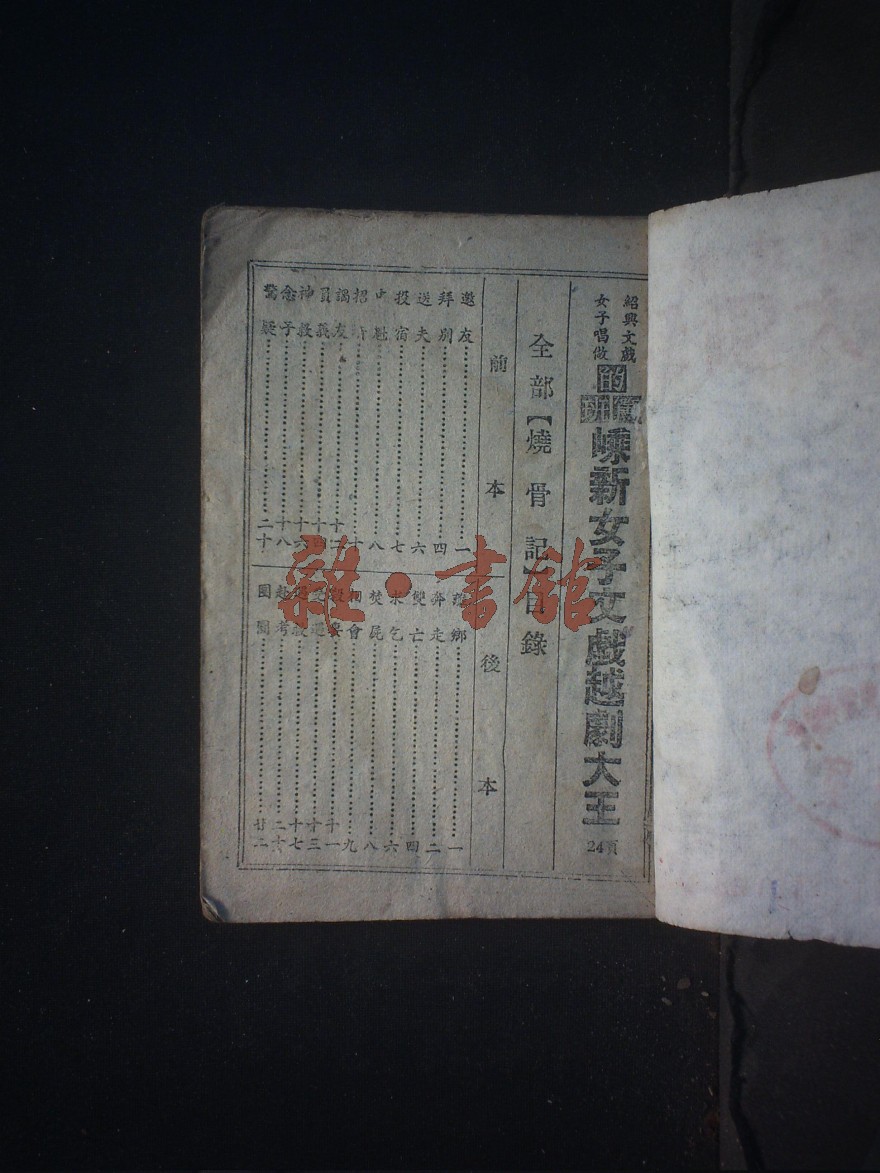 紹興文戲
女子唱做
的篤班
嵊新女子文戲越劇大王
24頁
全部【燒骨記】目錄
前本
邀友 一
拜別 四
送夫 六
投宿 七
中 八
招 十
謁友 十二
員義 十四
神救 十六
念子 十八
驚疑 二十
後本
鄉 一
奔走 二
雙亡 四
求乞 六
焚屍 八
相會 九
十一
十三
十七
赴考 二十
團圓 廿二
雜·書館